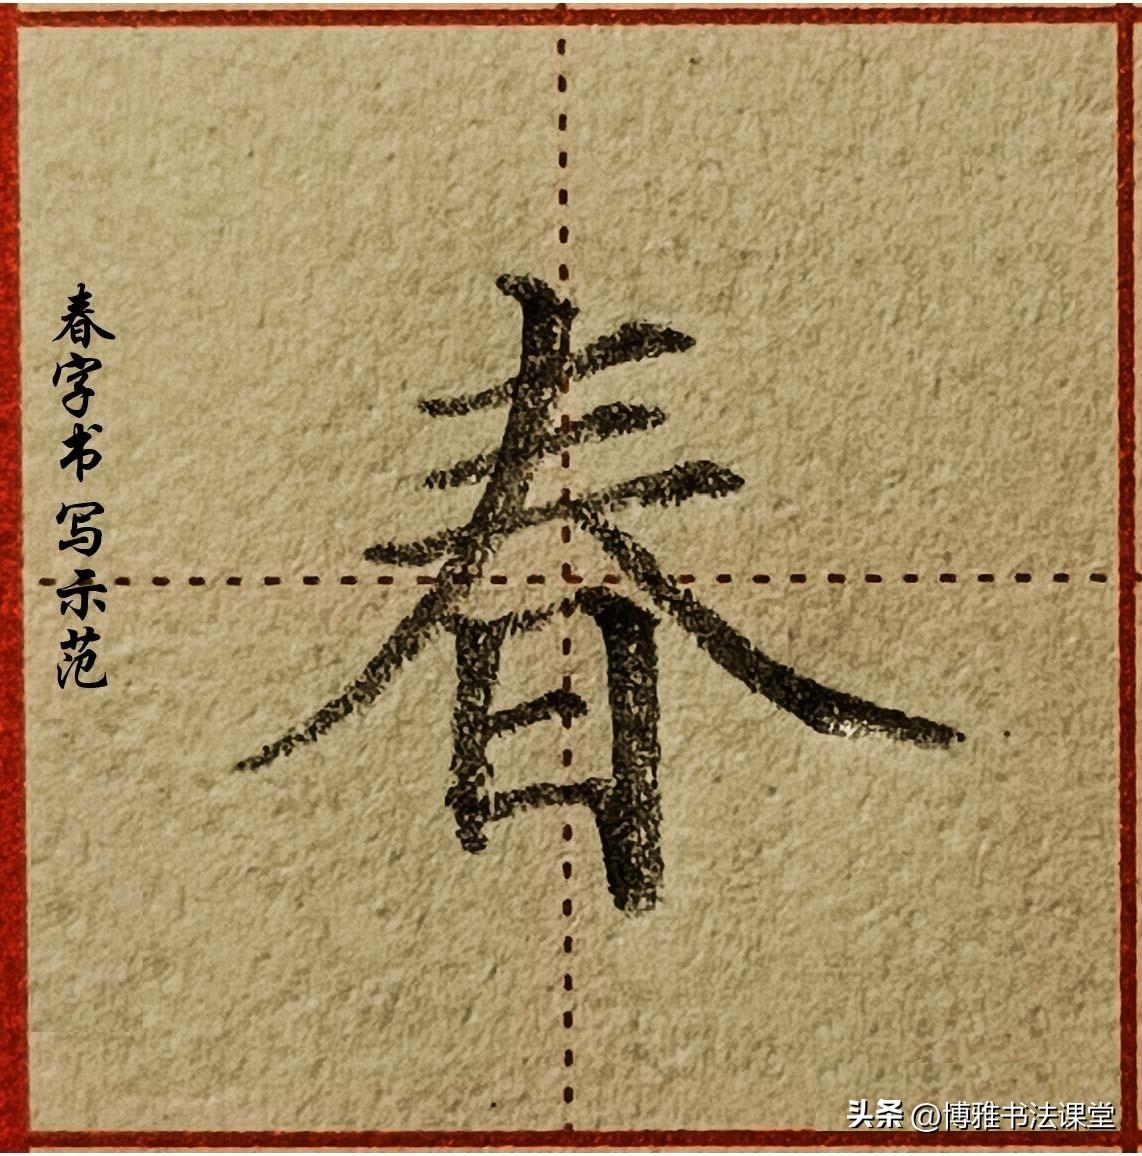 春字书写示范
春
头条 @博雅书法课堂